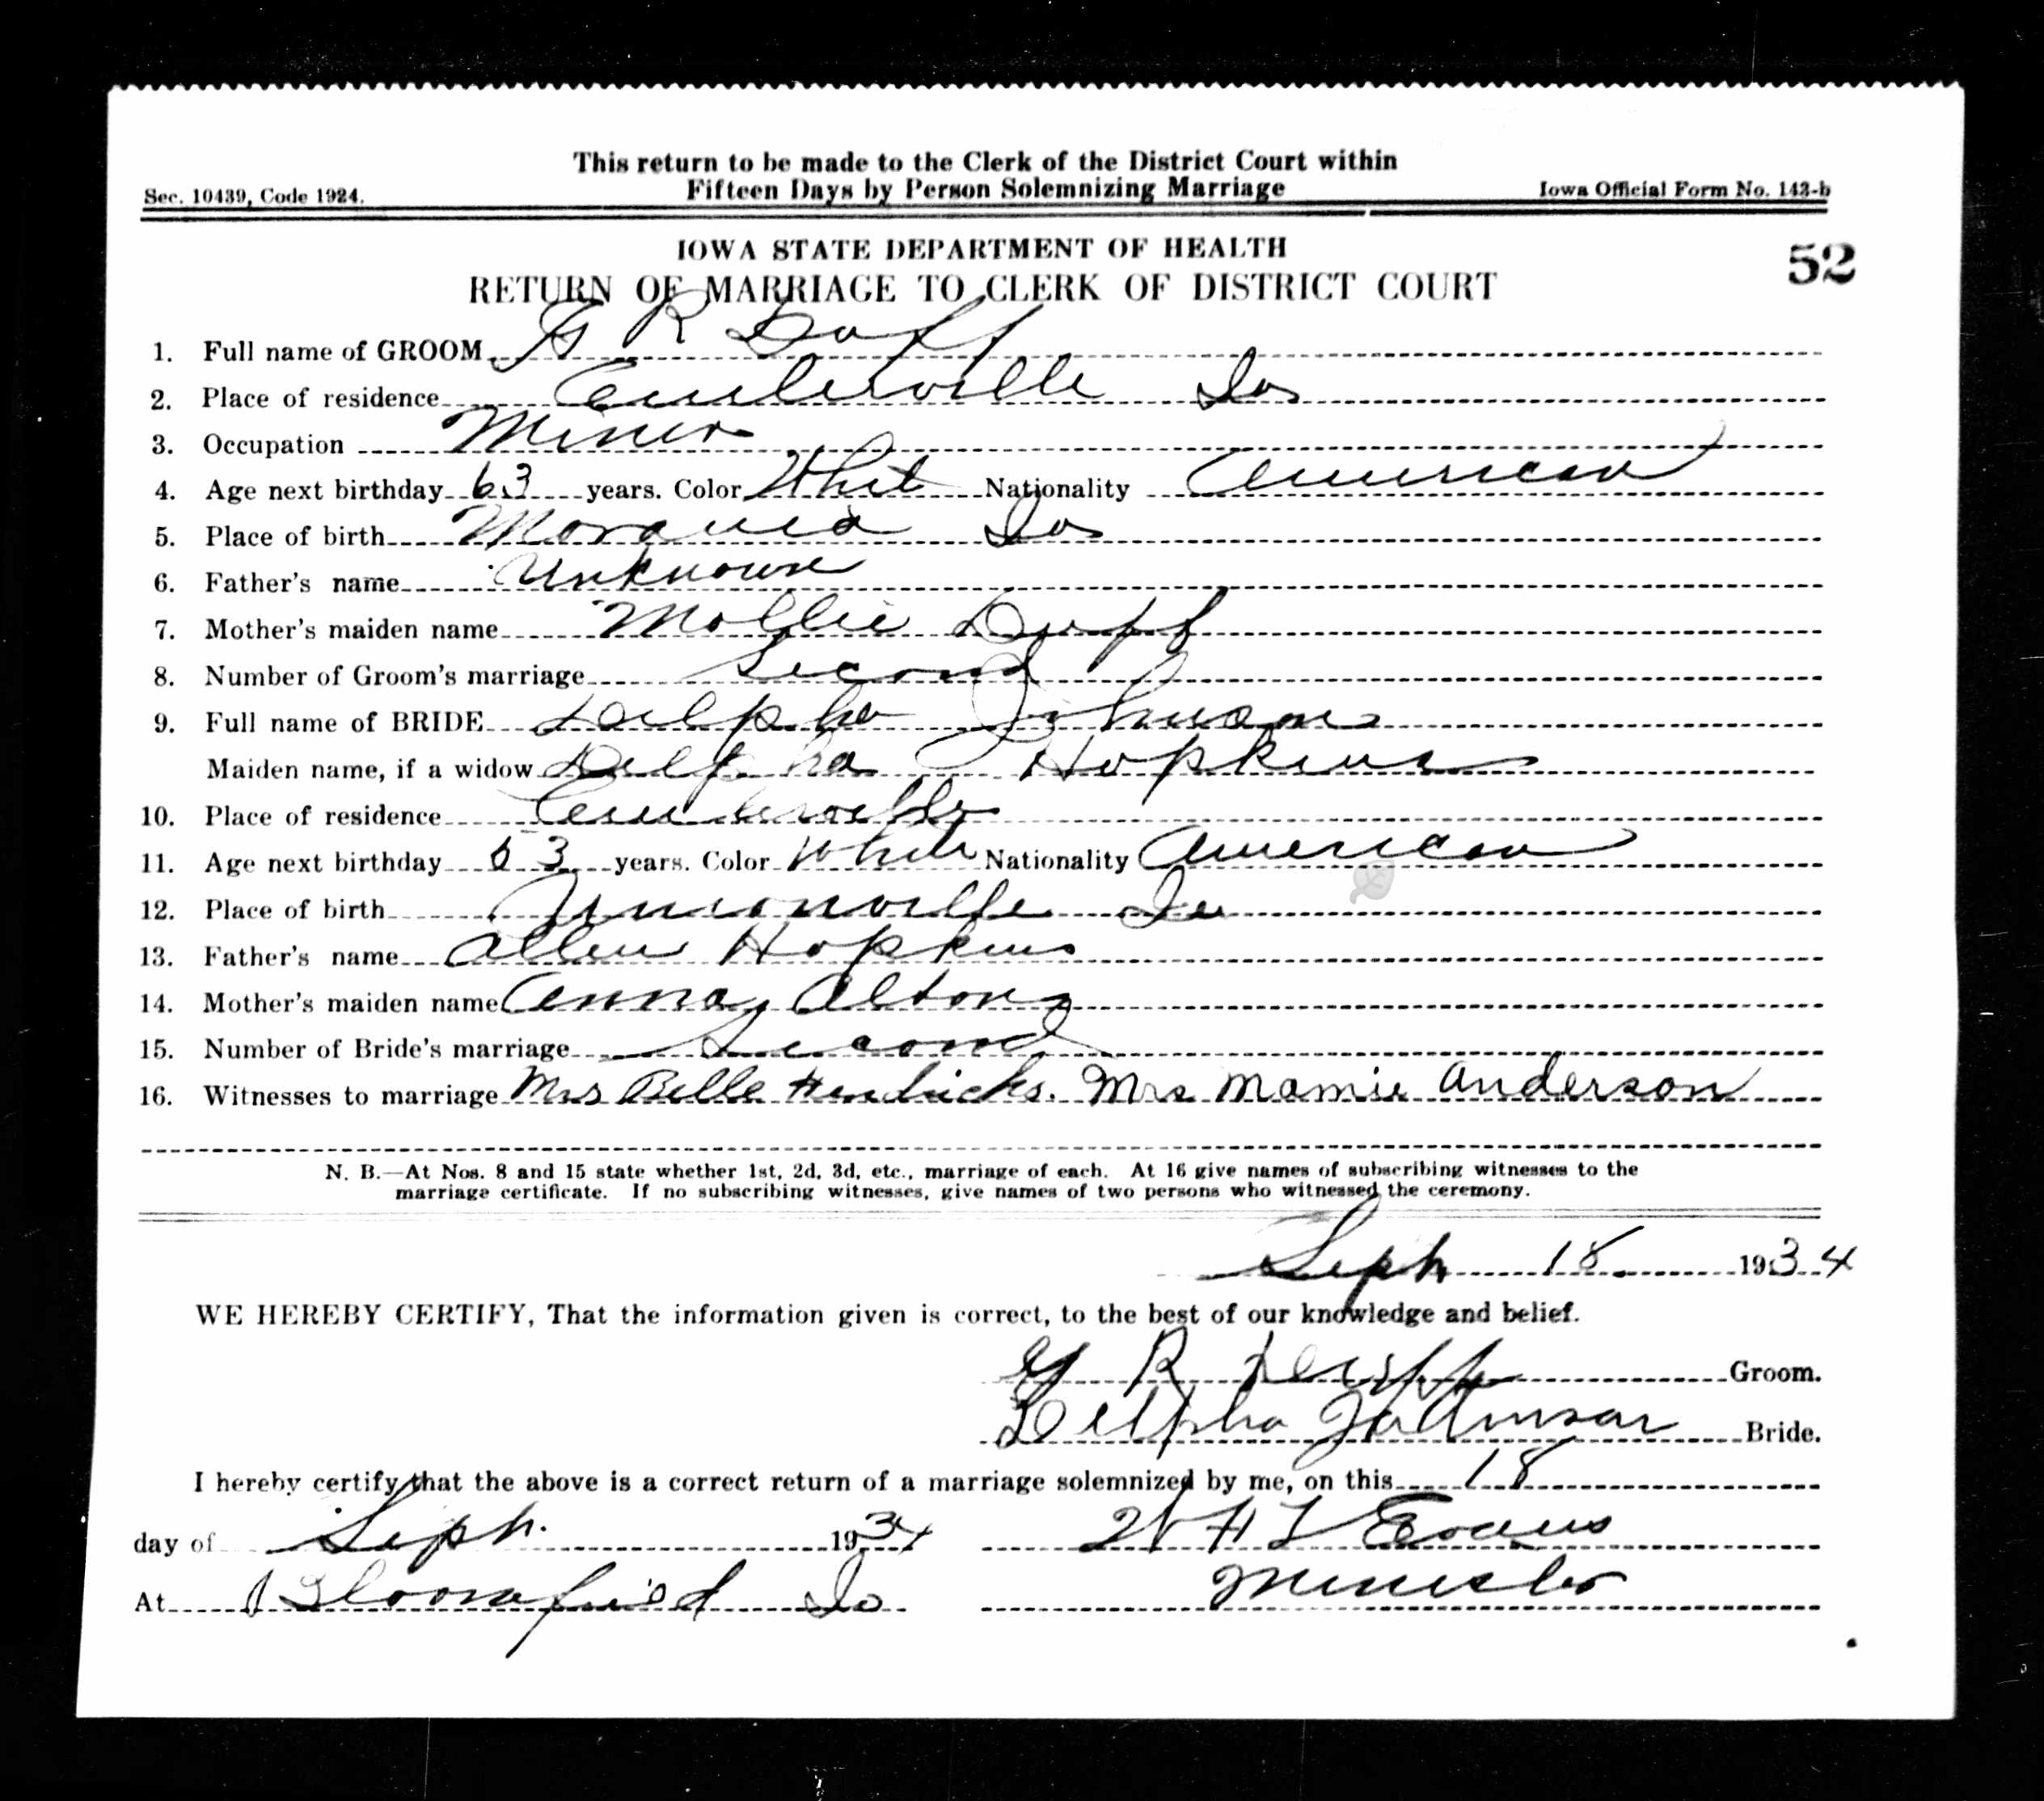 This return to be made to the Clerk of the District Court within
Sec. 10439, Code 1924. Fifteen Days by Person Solemnizing Marriage Iowa Official Form No. 142-b
IOWA STATE DEPARTMENT OF HEALTH
52
RETURN OF MARRIAGE TO CLERK OF DISTRICT COURT
1. Full name of GROOM G R Duff
2. Place of residence Centerville Ia
3. Occupation Miner
4. Age next birthday 63 years. Color White Nationality American
5. Place of birth Moravia Ia
6. Father's name Unknown
7. Mother's maiden name Mollie Duff
8. Number of Groom's marriage Second
9. Full name of BRIDE Delpha Johnson
Maiden name, if a widow Delpha Hopkins
10. Place of residence Centerville
11. Age next birthday 53 years. Color White Nationality American
12. Place of birth Unionville Ia
13. Father's name Allen Hopkins
14. Mother's maiden name Anna
15. Number of Bride's marriage Second
16. Witnesses to marriage Mrs Belle Hendricks. Mrs Mamie Anderson
N. B.—At Nos. 8 and 15 state whether 1st, 2d, 3d, etc., marriage of each. At 16 give names of subscribing witnesses to the
marriage certificate. If no subscribing witnesses, give names of two persons who witnessed the ceremony.
Sept 18 1934
WE HEREBY CERTIFY, That the information given is correct, to the best of our knowledge and belief.
G R Duff Groom.
Delpha Johnson Bride.
I hereby certify that the above is a correct return of a marriage solemnized by me, on this 18
day of Sept. 1934 Evans
At Bloomfield Io Minister